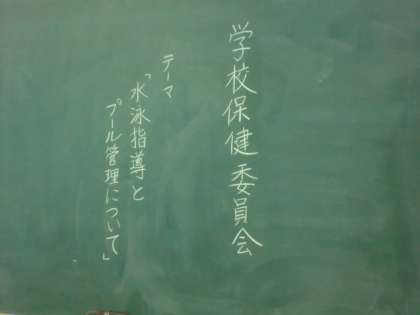 学校保健委員会
テーマ
「水泳指導と
プール管理について」